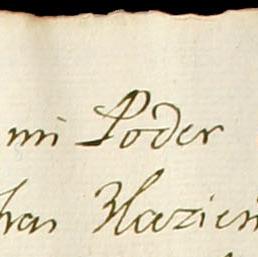 mi Poder
has Hazien